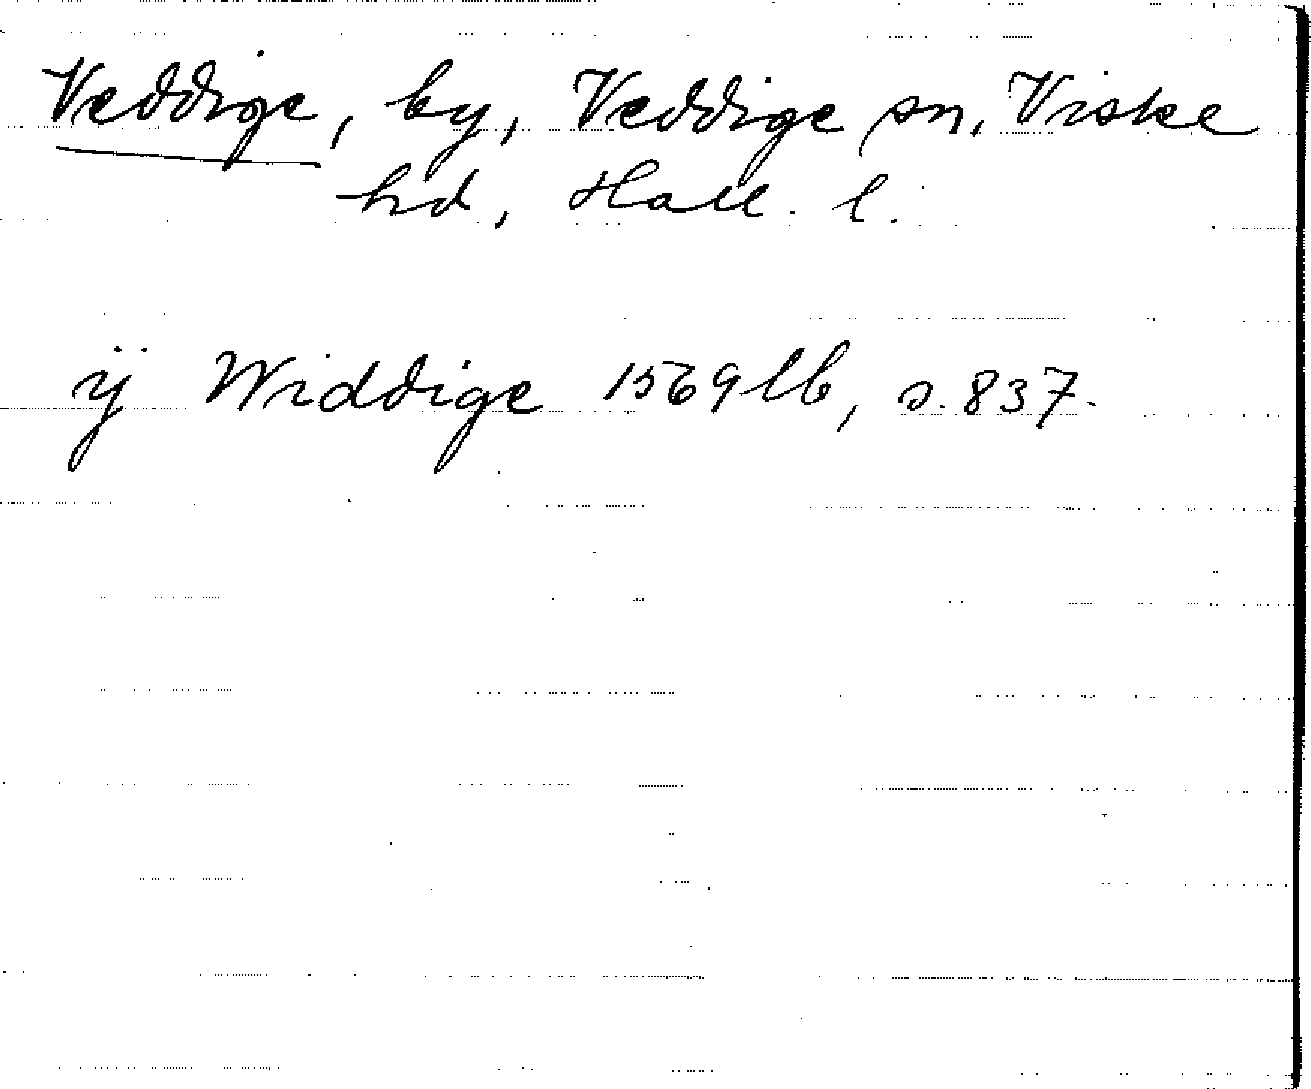 Veddige, by, Veddige sn, Viske
hd, Hall. l.
ij Widdige 1569 lb, s. 837.